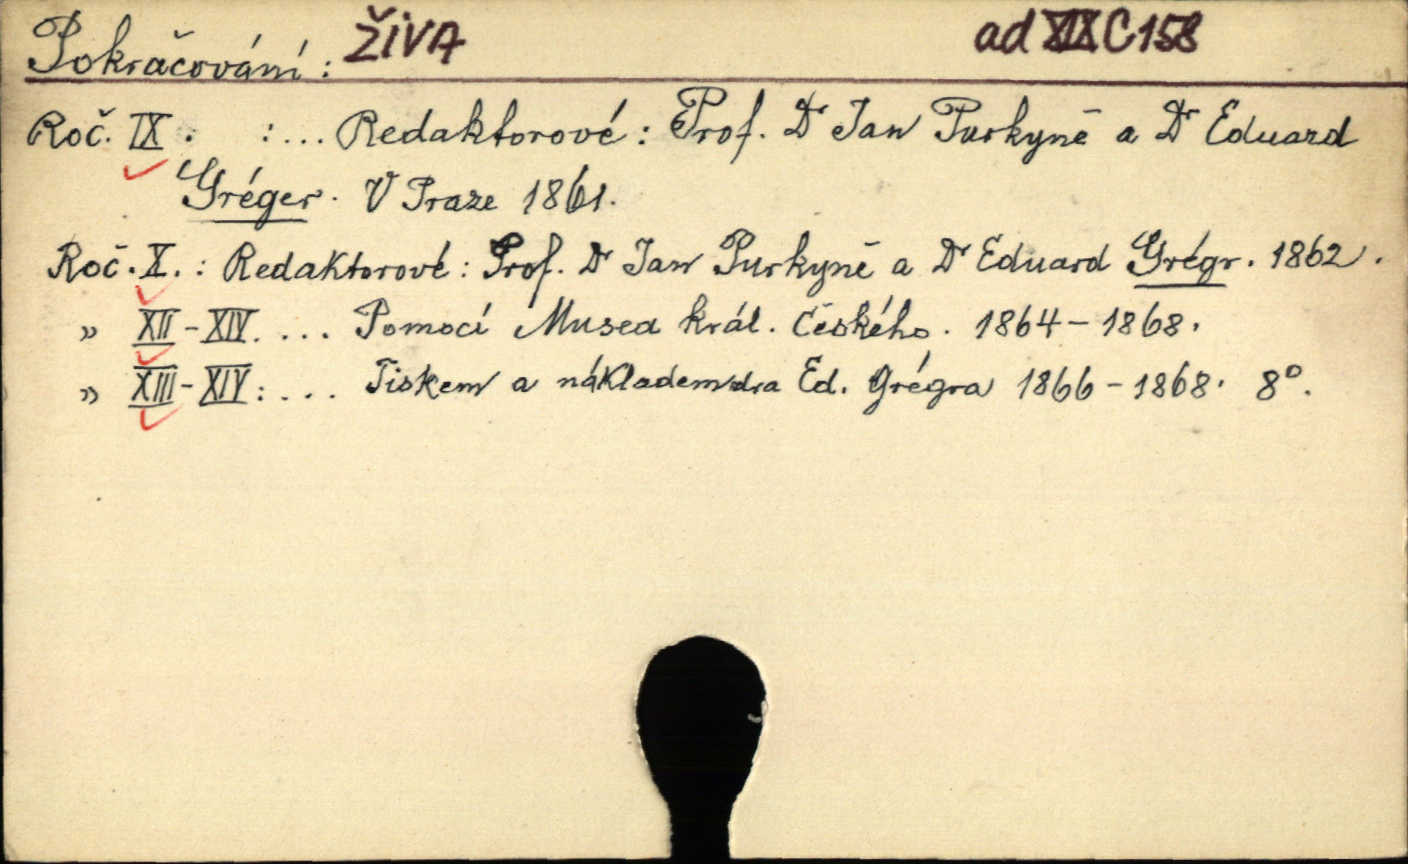 Pokračování: ŽIVA ad XIX C 158
Roč. IX. : ... Redaktorové: Prof. Dr Jan Purkyně a Dr Eduard
Gréger. V Praze 1861.
Roč. X. : Redaktorové: Prof. Dr Jan Purkyně a Dr Eduard Grégr. 1862.
" XII - XIV. ... Pomocí Musea král. českého. 1864 - 1868.
" XIII - XIV: ... Tiskem a nákladem dra Ed. Grégra 1866 - 1868. 8°.